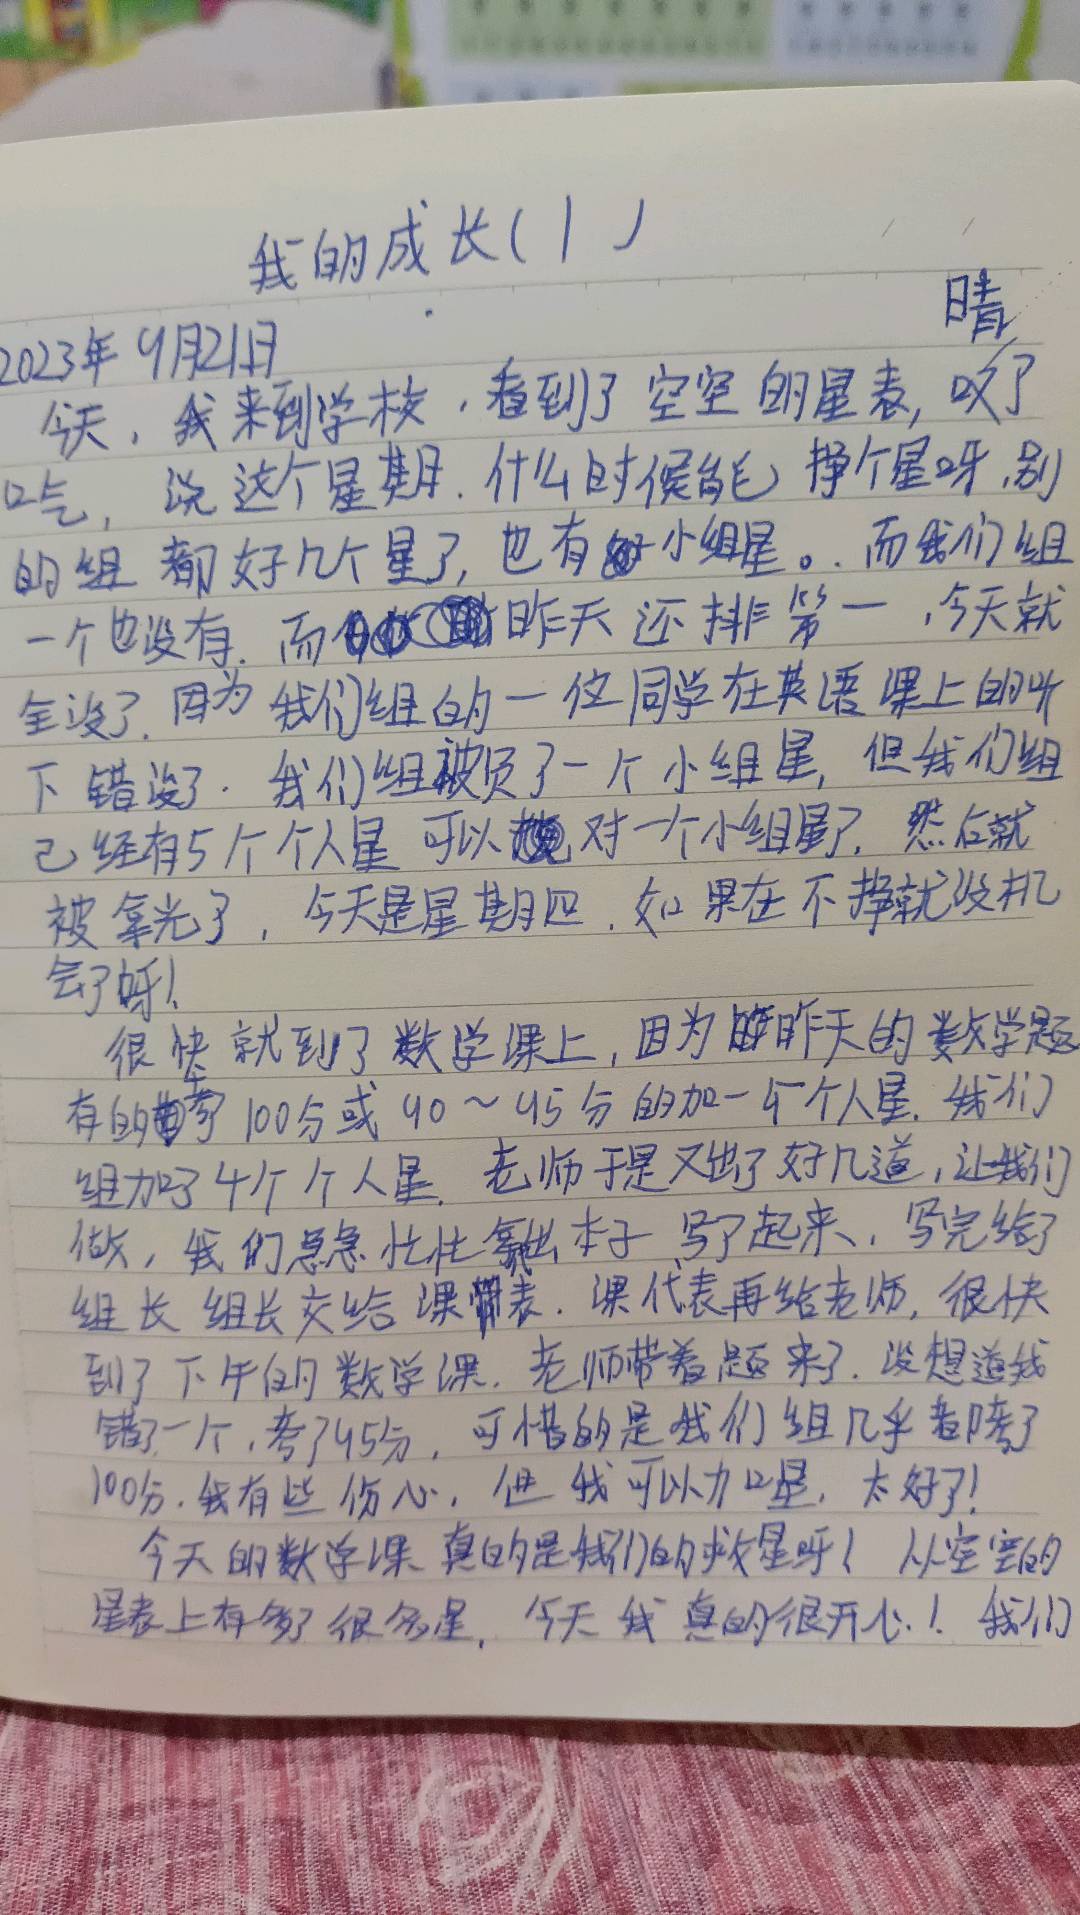 我的成长(1)
晴
2023年9月21日
今天，我来到学校，看到了空空的星表，叹了
口气，说这个星期．什么时候能挣个星呀，别
的组都好几个星了，也有小组星。而我们组
一个也没有．而昨天还排第一，今天就
全没了．因为我们组的一位同学在英语课上的听
下错没了．我们组被负了一个小组星，但我们组
己经有5个个人星可以对一个小组星了．然后就
被拿光了，今天是星期四．如果在不挣就没机
会了呀！
很快就到了数学课上，因为昨天的数学题
有的考100分或90～95分的加一个个人星．我们
组加了4个个人星．老师于是又出了好几道，让我们
做，我们急急忙忙拿出本子写了起来，写完给了
组长组长交给课表．课代表再给老师，很快
到了下午的数学课．老师带着题来了．没想道我
错了一个，考了95分，可惜的是我们组几乎都考了
100分．我有些伤心，但我可以加口星，太好了！
今天的数学课真的是我们的救星呀！从空空的
星表上有多了很多星．今天我真的很开心！我们